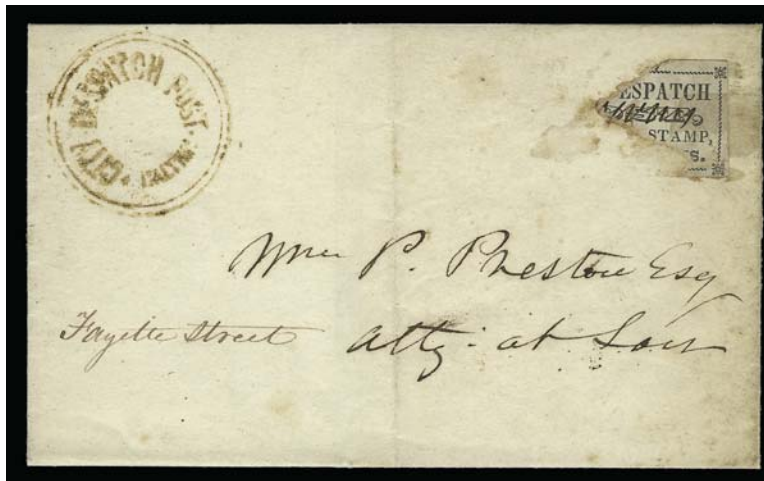 CITY DESPATCH POST.
ESPATCH
STAMP,
S.
Wm P. Preston Esq
Fayette Street Atty: at Law